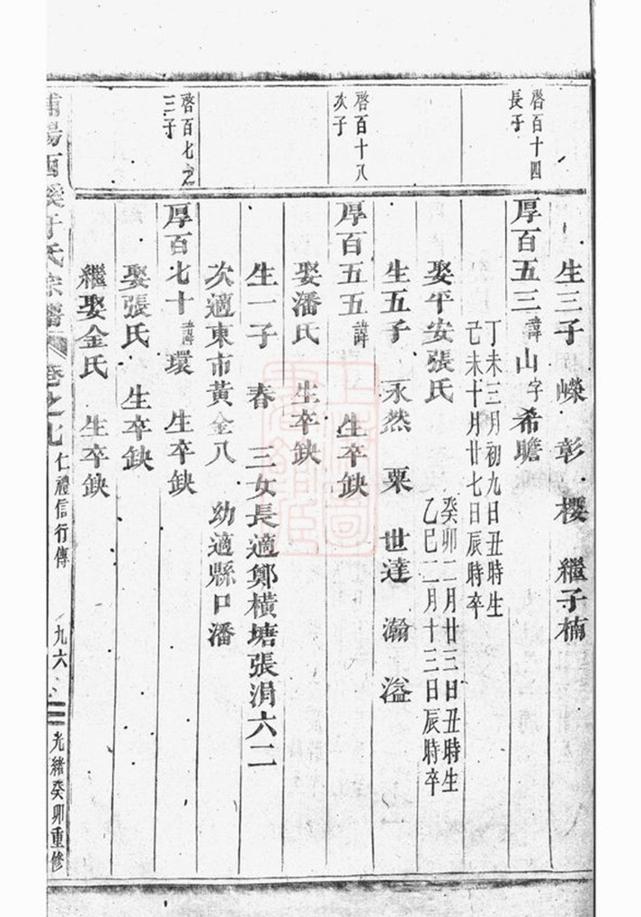 生三子 嶸 彰 樱 繼子楠
啓百十四
長子
厚百五三諱山字希瞻
丁未三月初九日丑時生
己未十月廿七日辰時卒
娶平安張氏
癸卯二月廿三日丑時生
乙巳二月十三日辰時卒
生五子 永然 粟 世達 瀚 溢
啓百十八
次子
厚百五五諱 生卒缺
娶潘氏 生卒缺
生一子 春 三女長適鄭橫塘張涓六二
次適東市黃金八 幼適縣口潘
啓百七之
三子
厚百七十諱環 生卒缺
娶張氏 生卒缺
繼娶金氏 生卒缺
浦陽西溪于氏宗譜 卷之九 仁禮信行傳 九六 光緒癸卯重修